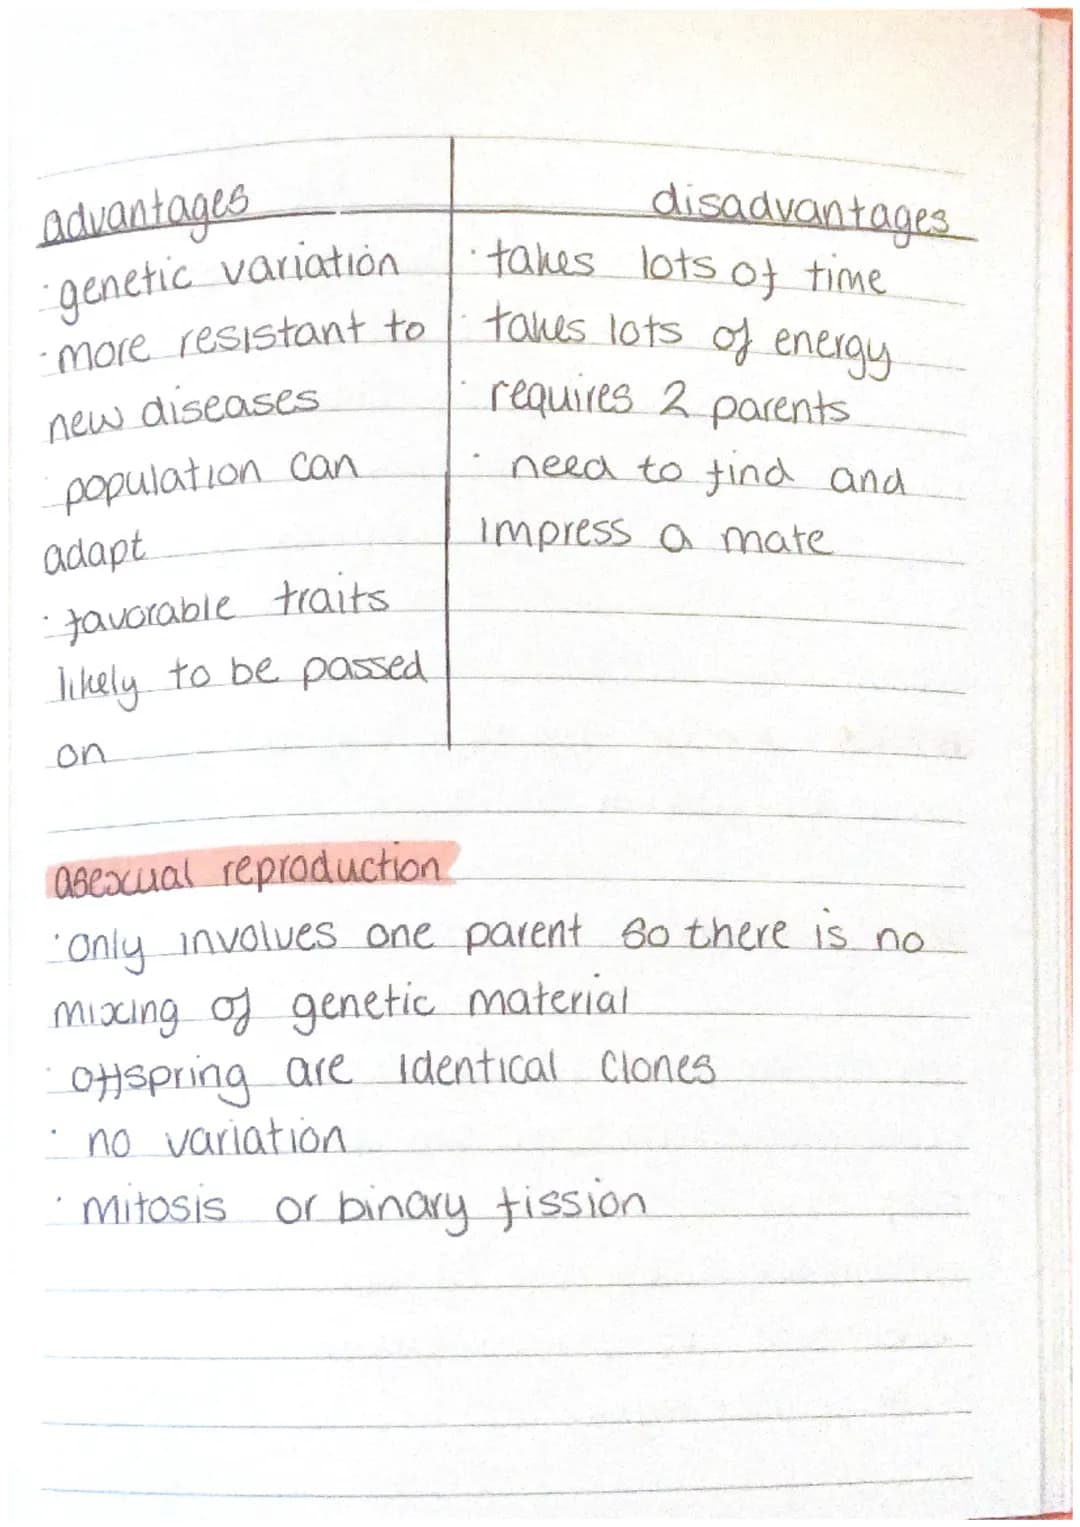 advantages
disadvantages
· genetic variation
· more resistant to
new diseases
· population can
adapt
· favorable traits
likely to be passed
on
· takes lots of time
· takes lots of energy
· requires 2 parents
· need to find and
impress a mate
asexual reproduction
· only involves one parent so there is no
mixing of genetic material
· offspring are identical clones
· no variation
· mitosis or binary fission